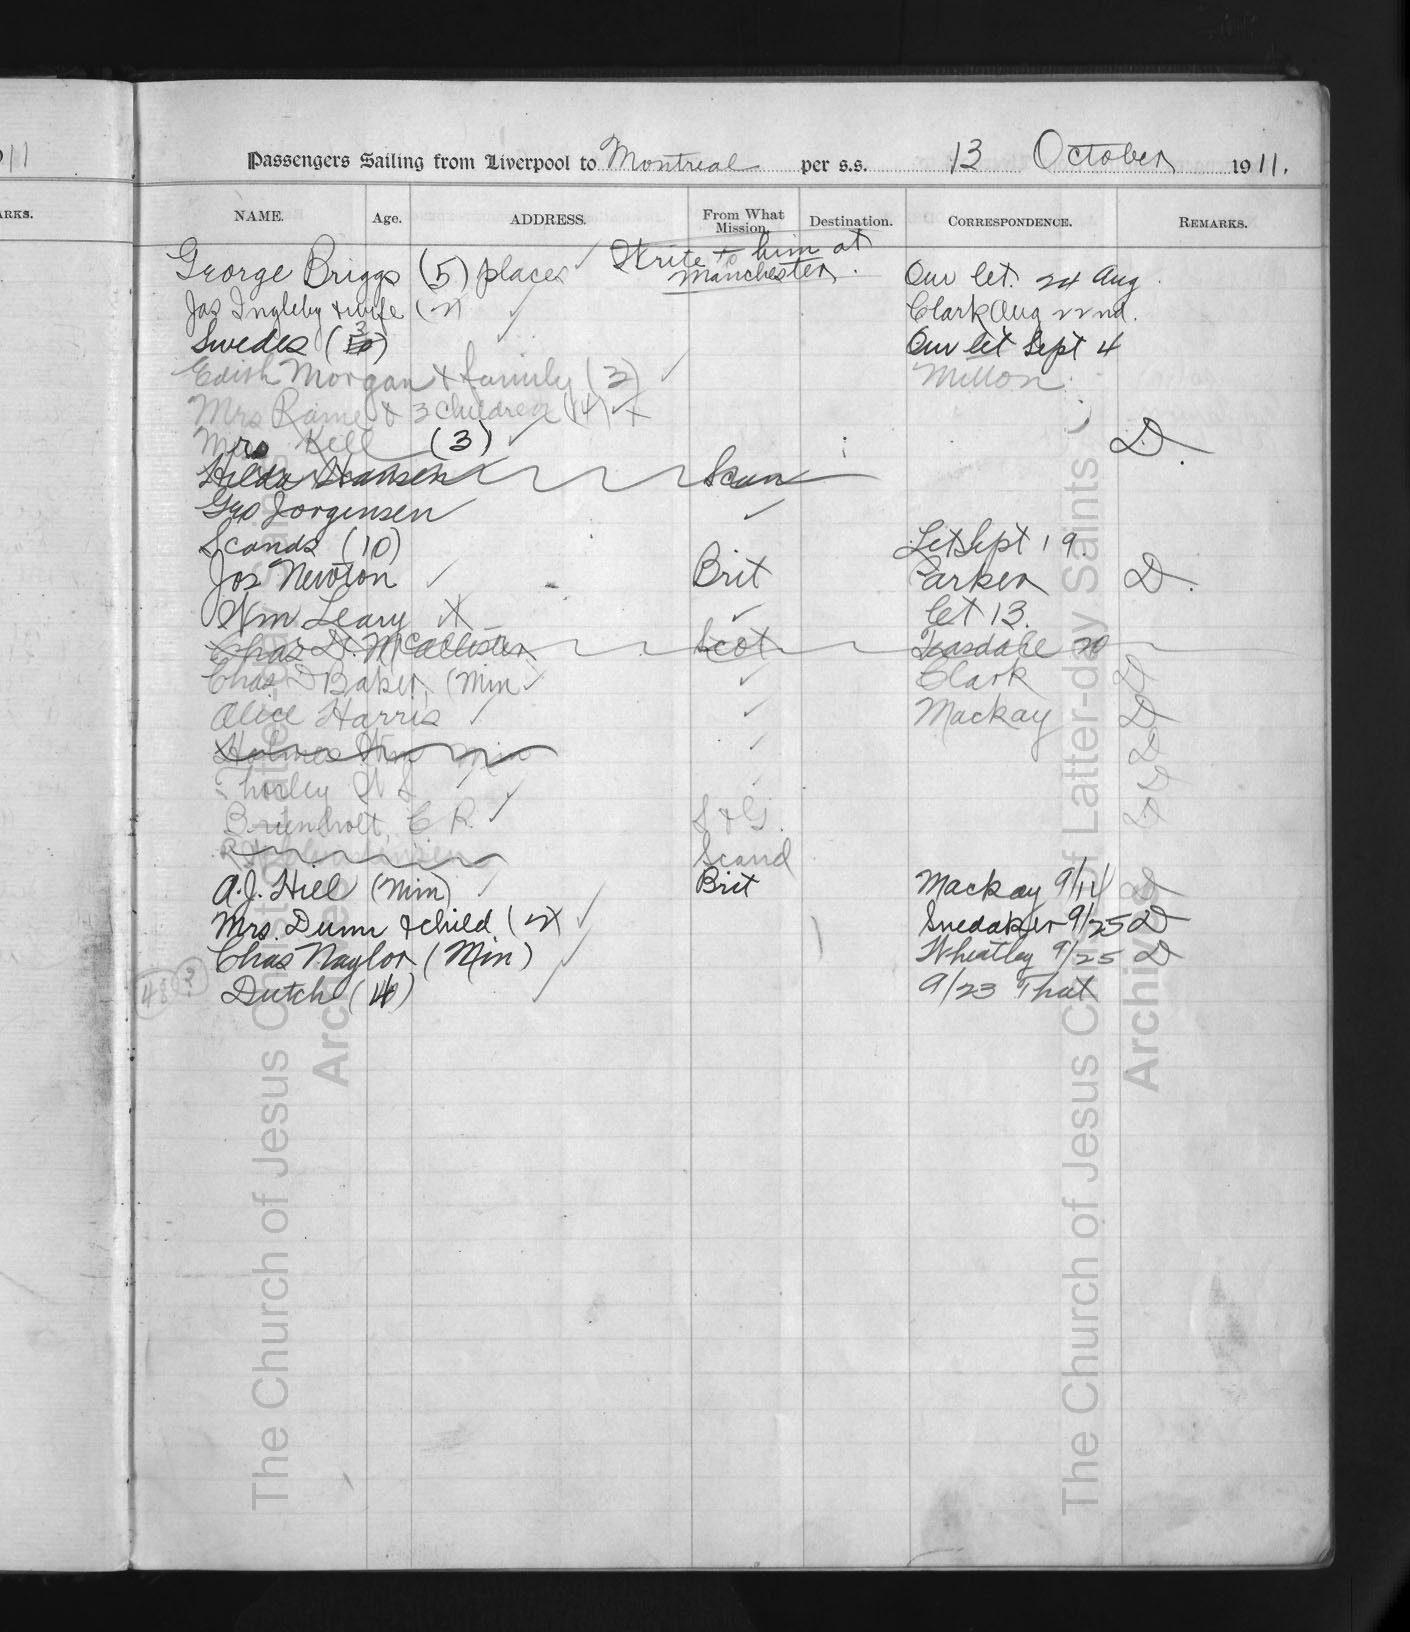 11
ARKS.
Passengers Sailing from Liverpool to Montreal per s.s. 13 October 1911.
NAME. Age. ADDRESS. From What Mission. Destination. CORRESPONDENCE. REMARKS.
George Briggs (5) places Write to him at Manchester. Our let. 24 Aug.
Jos Ingleby & wife (2) Clark Aug 22nd.
Swedes (3) Our let Sept 4
Edith Morgan & family (3)
Mrs & 3 children (4)
Mrs Kell (3) D.
Hilda Hansen Scan
Geo Jorgensen
Scands (10) Let Sept 19
Jos Newton Brit Parker D.
Wm Leary let 13.
Chas D. McCallister Scot Teasdale 20
Chas Baker (Min Clark D
Alice Harris Mackay D
Holmes Wm Min D
Thorley D
C R. S & G. D
Scand
A.J. Hill (Min) Brit Mackay 9/14 D
Mrs. Dunn & child (2) Snedaker 9/25 D
Chas Naylor (Min) Wheatley 9/25 D
48 ? Dutch (4) 9/23 That
The Church of Jesus Christ of Latter-day Saints
Archives
The Church of Jesus Christ of Latter-day Saints
Archives